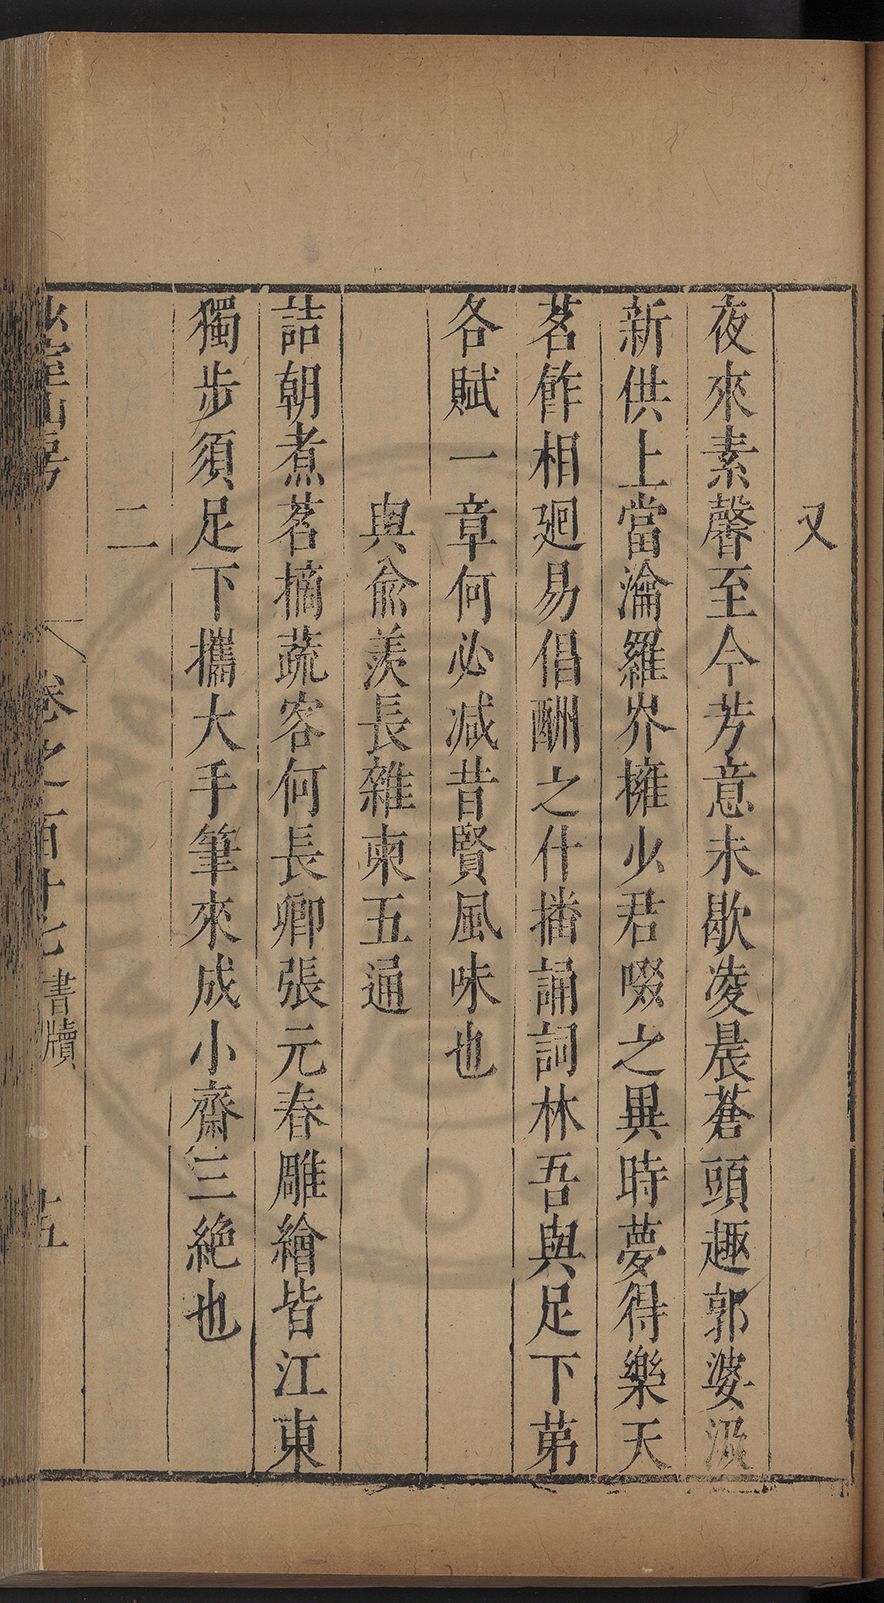 又
夜來素馨至今芳意未歇凌晨蒼頭趣郭婆汲
新供上當瀹羅岕擁少君啜之異時夢得樂天
茗飵相廻易倡酬之什播誦詞林吾與足下苐
各賦一章何必减昔賢風味也
與俞羨長雜柬五通
詰朝煮茗摘蔬客何長卿張元春雕繪皆江東
獨步須足下攜大手筆來成小齋三絶也
二
少室山房 卷之百十七 書牘 十五